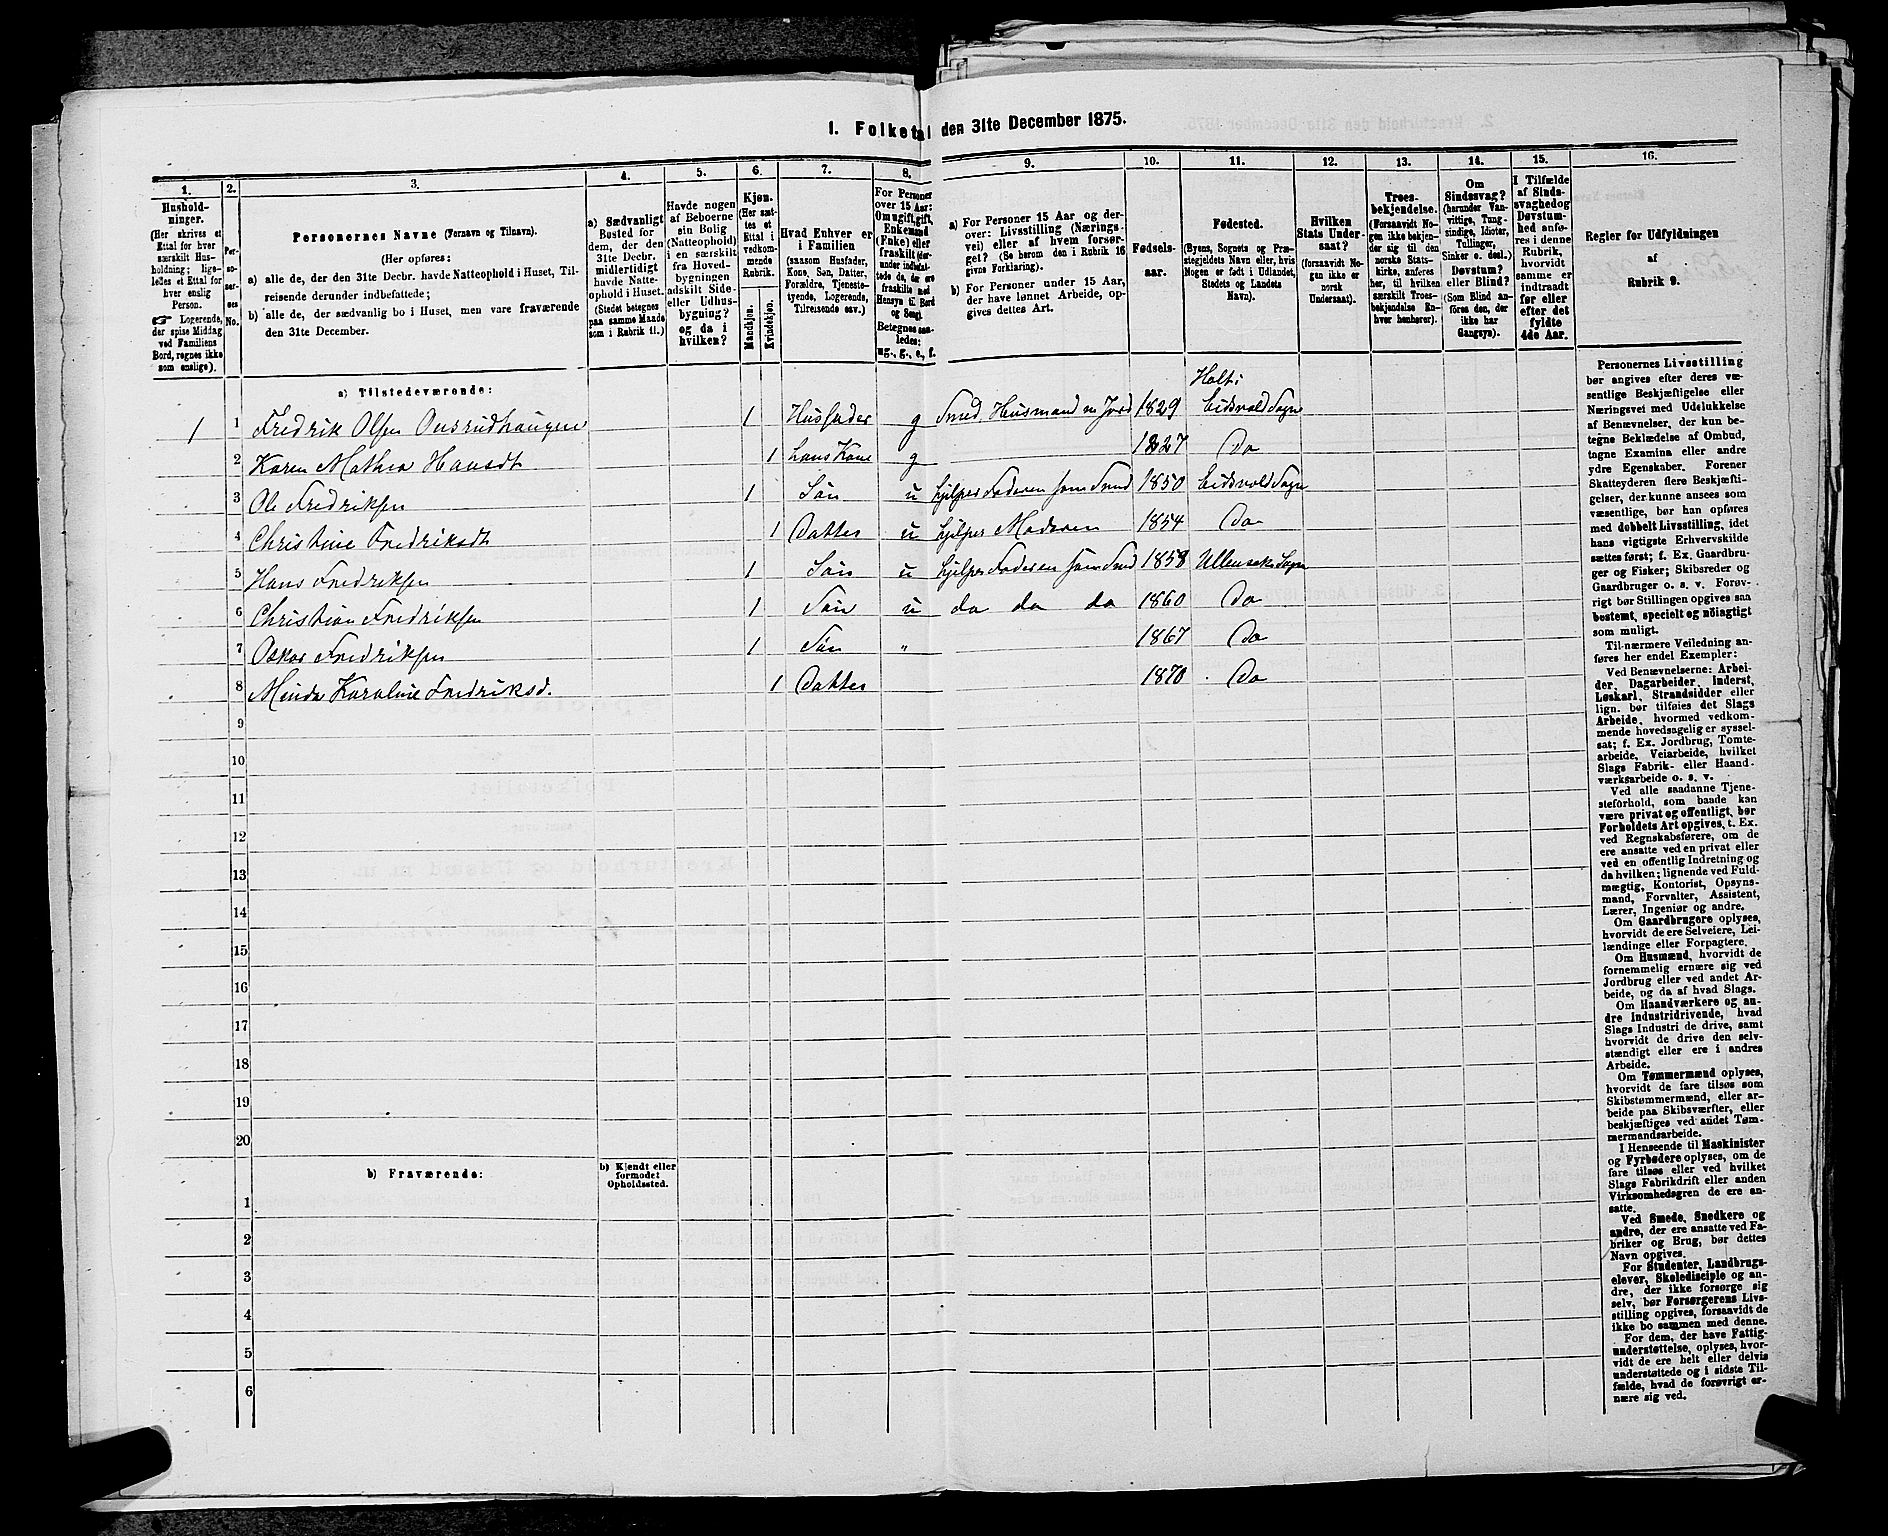 1. Folketal den 31te December 1875.
1. 2. 3. 4. 5. 6. 7. 8. 9. 10. 11. 12. 13. 14. 15. 16.
Hushold-
ninger.
(Her skrives et
Ettal for hver
særskilt Hus-
holdning; lige-
ledes et Ettal for
hver enslig
Person.
☞ Logerende,
der spise Middag
ved Familiens
Bord, regnes ikke
som enslige).
Per-
so-
ner-
nes
No.
Personernes Navne (Fornavn og Tilnavn).
(Her opføres:
a) alle de, der den 31te Decbr. havde Natteophold i Huset, Til-
reisende derunder indbefattede;
b) alle de, der sædvanlig bo i Huset, men vare fraværende
den 31te December.
a) Sædvanligt
Bosted for
dem, der den
31te Decbr.
midlertidigt
havde Natte-
ophold i Huset.
(Stedet betegnes
paa samme Maade
som i Rubrik 11.)
Havde nogen
af Beboerne
sin Bolig
(Natteophold)
i en særskilt
fra Hoved-
bygningen
adskilt Side-
eller Udhus-
bygning?
og da i
hvilken?
Kjøn.
(Her sæt-
tes et
Ettal i
vedkom-
mende
Rubrik.
Mandkjøn.
Kvindekjøn.
Hvad Enhver er
i Familien
(saasom Husfader,
Kone, Søn, Datter,
Forældre, Tjeneste-
tyende, Logerende,
Tilreisende osv.)
For Personer
over 15 Aar:
Om ugift, gift,
Enkemand
(Enke) eller
fraskilt (der-
under indbefat-
tede de, der ere
fraskilte med
Hensyn til Bord
og Seng).
Betegnes saa-
ledes:
ug., g., e., f.
a) For Personer 15 Aar og der-
over: Livsstilling (Nærings-
vei) eller af hvem forsør-
get? (Se herom den i Rubrik 16
givne Forklaring).
b) For Personer under 15 Aar,
der have lønnet Arbeide, op-
gives dettes Art.
Fødsels-
aar.
Fødested.
(Byens, Sognets og Præ-
stegjeldets Navn eller, hvis
Nogen er født i Udlandet,
Stedets og Landets
Navn).
Hvilken
Stats Under-
saat?
(forsaavidt No-
gen ikke er
norsk
Undersaat).
Troes-
bekjendelse.
(Forsaavidt No-
gen ikke bekjen-
der sig til den
norske Stats-
kirke, anføres
her, til hvilken
særskilt Troes-
bekjendelse En-
hver henhører).
Om
Sindssvag?
(herunder Van-
vittige, Tung-
sindige, Idioter,
Tullinger,
Sinker o. desl.).
Døvstum?
eller Blind?
(Som Blind an-
føres den, der
ikke har
Gangsyn).
I Tilfælde
af Sinds-
svaghed og
Døvstum-
hed anfø-
res i denne
Rubrik,
hvorvidt
samme er
indtraadt
før eller
efter det
fyldte
4de Aar.
Regler for Udfyldningen
af
Rubrik 9.
a) Tilstedeværende:
Holt i
1 1 Fredrik Olsen Onsrudhaugen 1 Husfader g Smed, Husmand m Jord 1829 Eidsvold Sogn
2 Karen Mathea Hansdt 1 hans Kone g 1827 Do
3 Ole Fredriksen 1 Søn u hjelper Faderen som Smed 1850 Eidsvold Sogn
4 Christine Fredriksdt 1 Datter u hjelper Moderen 1854 Do
5 Hans Fredriksen 1 Søn u hjelper Faderen som Smed 1858 Ullensaker Sogn
6 Christian Fredriksen 1 Søn u do do do 1860 Do
7 Oskar Fredriksen 1 Søn " 1867 Do
8 Minda Karoline Fredriksd. 1 Datter 1870 Do
9
10
11
12
13
14
15
16
17
18
19
20
b) Fraværende:
b) Kjendt eller
formodet
Opholdssted.
1
2
3
4
5
6
Personernes Livsstilling
bør angives efter deres væ-
sentlige Beskjæftigelse eller
Næringsvei med Udelukkelse
af Benævnelser, der kun be-
tegne Beklædelse af Ombud,
tagne Examina eller andre
ydre Egenskaber. Forener
Skatteyderen flere Beskjæfti-
gelser, der kunne ansees som
væsentlige, bør han opføres
med dobbelt Livsstilling, idet
hans vigtigste Erhvervskilde
sættes først; f. Ex. Gaardbru-
ger og Fisker; Skibsreder og
Gaardbruger o. s. v. Forøv-
rigt bør Stillingen opgives saa
bestemt, specielt og nøiagtigt
som muligt.
Til nærmere Veiledning an-
føres her endel Exempler:
Ved Benævnelserne: Arbei-
der, Dagarbeider, Inderst,
Løskarl, Strandsidder eller
lign. bør tilføies det Slags
Arbeide, hvormed vedkom-
mende hovedsagelig er syssel-
sat; f. Ex. Jordbrug, Tomte-
arbeide, Veiarbeide, hvilket
Slags Fabrik- eller Haand-
værksarbeide o. s. v.
Ved alle saadanne Tjene-
steforhold, som baade kan
være privat og offentligt, bør
Forholdets Art opgives, t. Ex.
ved Regnskabsførere, om de
ere ansatte ved en privat eller
ved en offentlig Indretning og
da hvilken; lignende ved Fuld-
mægtig, Kontorist, Opsyns-
mand, Forvalter, Assistent,
Lærer, Ingeniør og andre.
Om Gaardbrugere oplyses,
hvorvidt de ere Selveiere, Lei-
lændinge eller Forpagtere.
Om Husmænd, hvorvidt de
fornemmelig ernære sig ved
Jordbrug eller ved andet Ar-
beide, og da af hvad Slags.
Om Haandværkere og an-
dre Industridrivende, hvad
Slags Industri de drive, samt
hvorvidt de drive den selv-
stændigt eller ere i andres
Arbeide.
Om Tømmermænd oplyses,
hvorvidt de fare tilsøs som
Skibstømmermænd, eller ar-
beide paa Skibsværfter, eller
beskjæftiges ved andet Tøm-
mermandsarbeide.
I Henseende til Maskinister
og Fyrbødere oplyses, om de
fare tilsøs eller ved hvilket
Slags Fabrikdrift eller anden
Virksomhedsgren de ere an-
satte.
Ved Smede, Snedkere og
andre, der ere ansatte ved Fa-
briker og Brug, bør dettes
Navn opgives.
For Studenter, Landbrugs-
elever, Skoledisciple og an-
dre, der ikke forsørge sig
selv, bør Forsørgerens Livs-
stilling opgives, forsaavidt de
ikke bo sammen med denne.
For dem, der have Fattig-
understøttelse, oplyses, hvor-
vidt de ere helt eller delvis
understøttede og i sidste Til-
fælde, hvad de forøvrigt er-
nære sig ved.